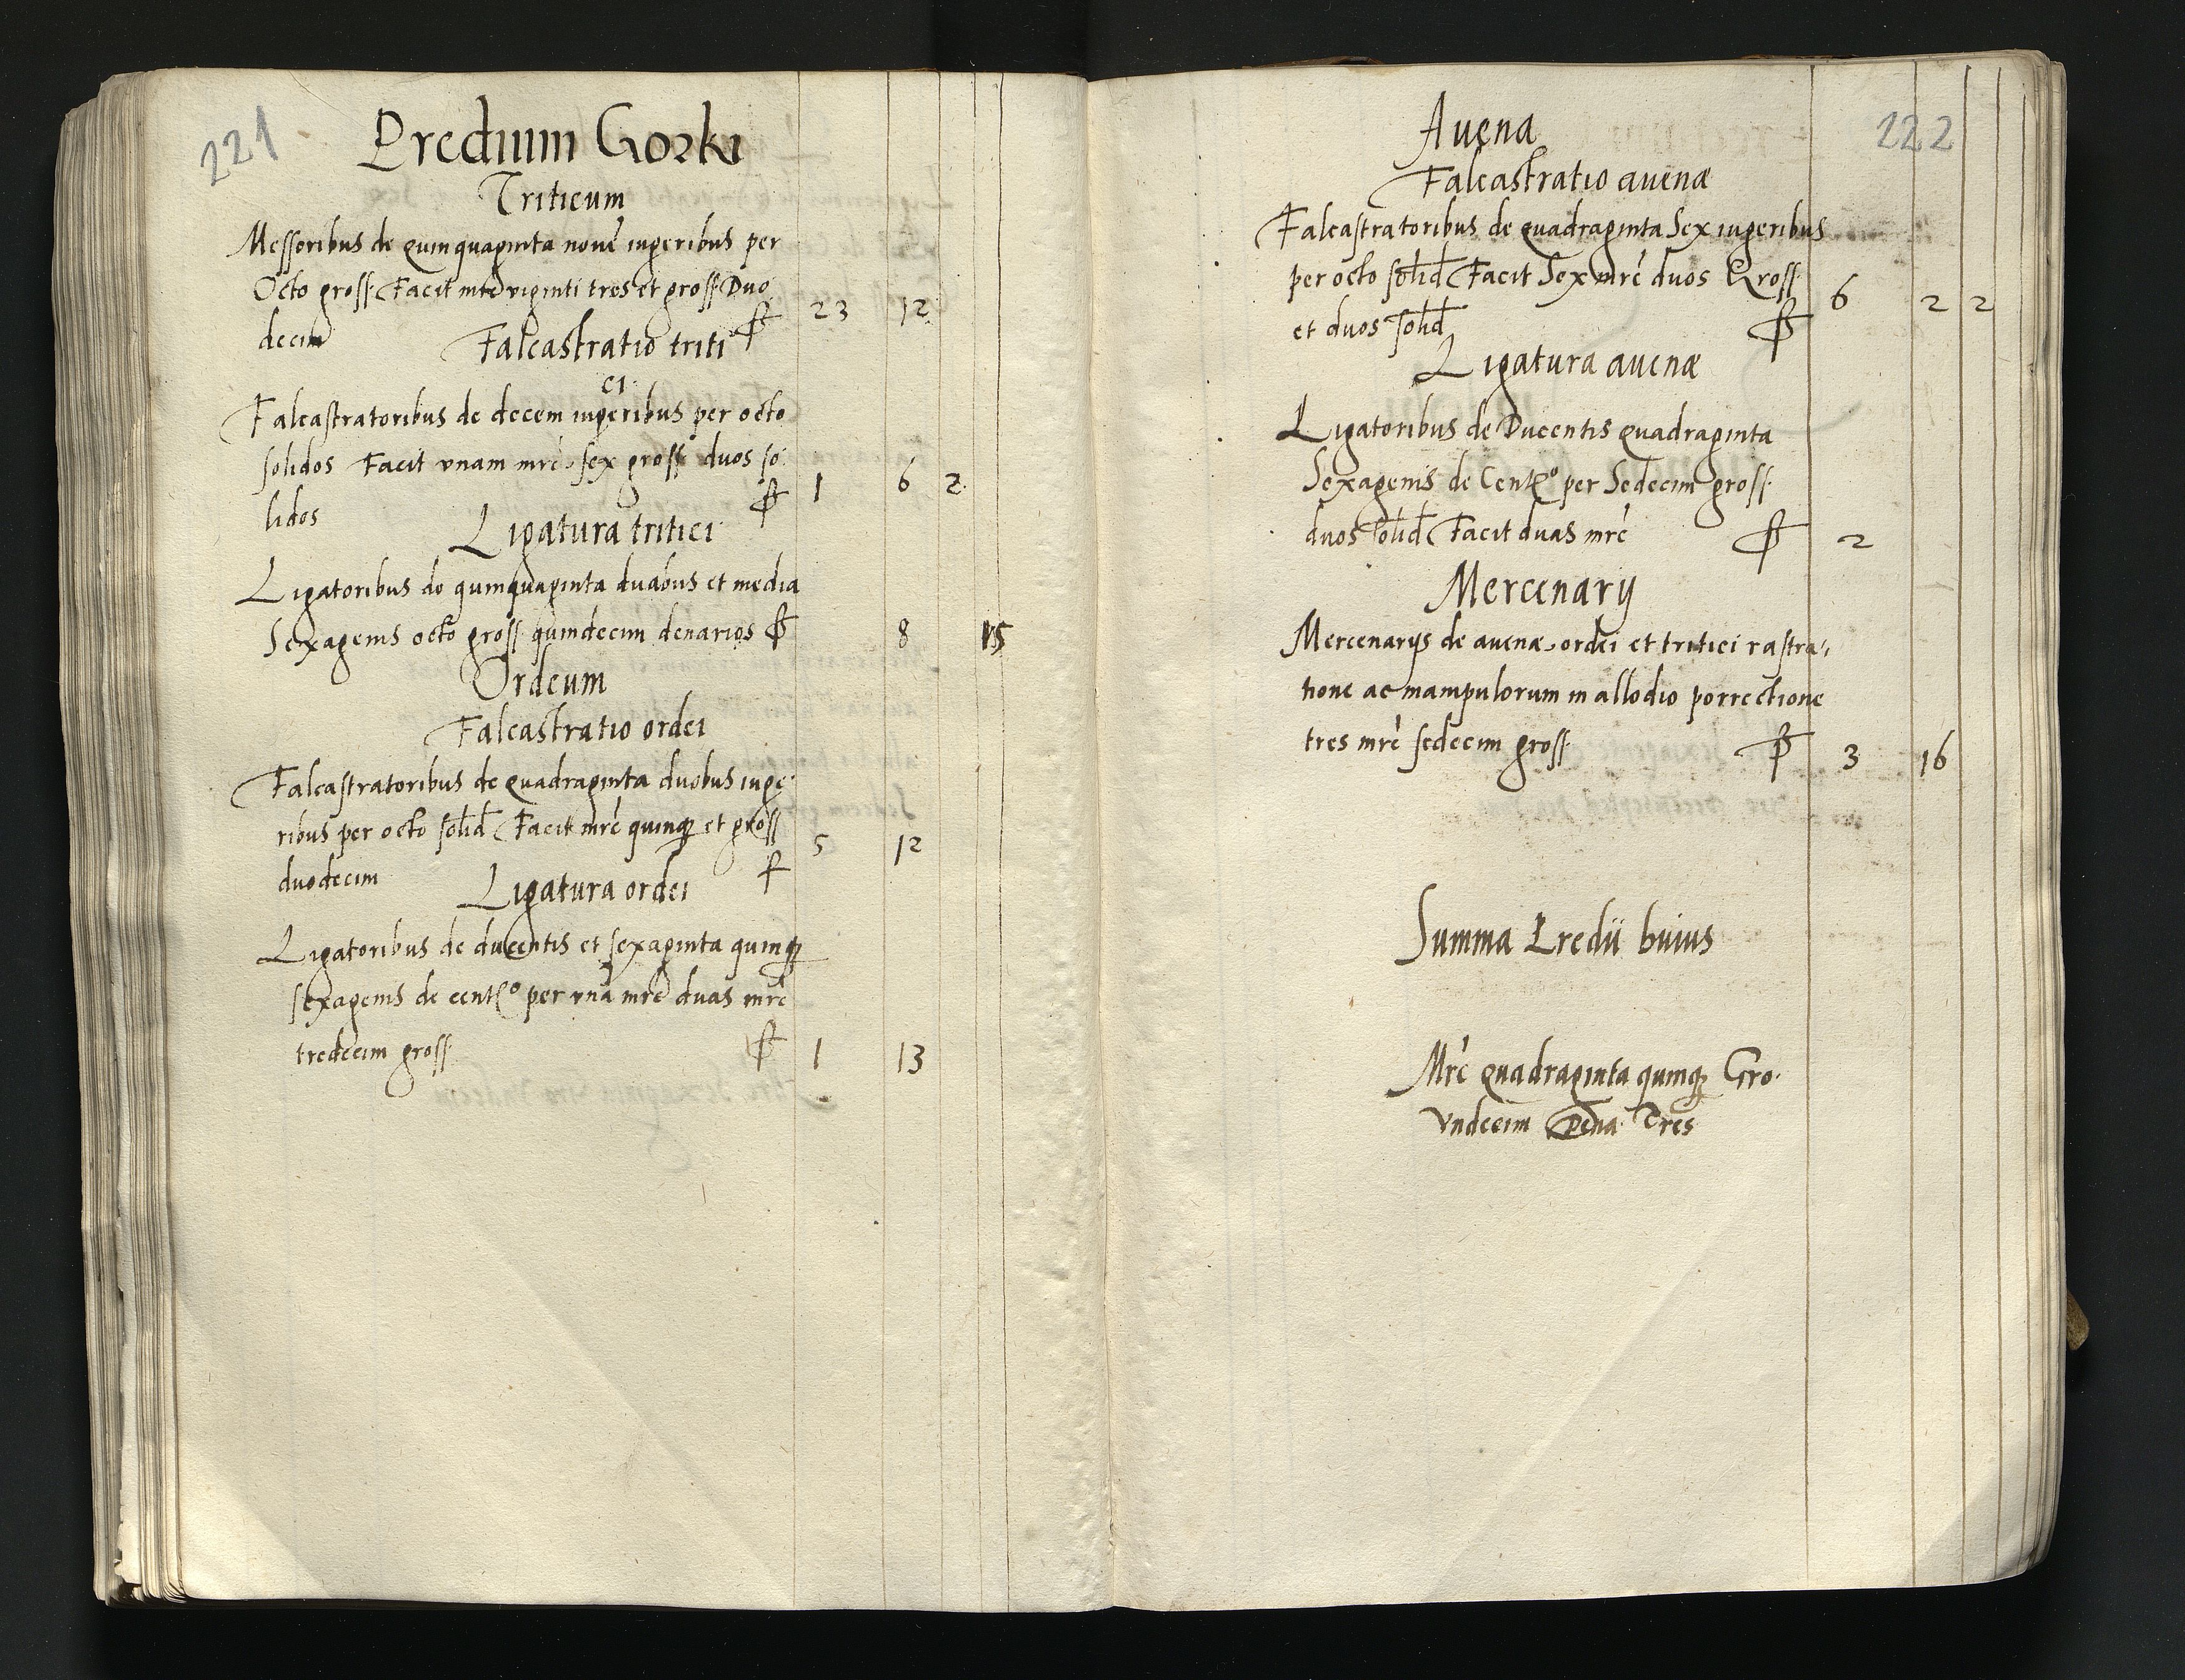 221
Predium Gorki
Triticum
Messoribus de quinquaginta nouē iugeribus per
Octo gross. Facit mrc viginti tres et gross. Duo
decim ꝑ 23 12
Falcastratio triti
ci
Falcastratoribus de decem iugeribus per octo
solidos Facit vnam mrč sex gross duos so
lidos ꝑ 1 6 2
Ligatura tritici
Ligatoribus de quinquaginta duabus et media
Sexagenis octo gross. quindecim denarios ꝑ 8 15
Ordeum
Falcastratio ordei
Falcastratoribus de quadraginta duobus iuge
ribus per octo solid Facit mrč quinqꝫ et gross
duodecim ꝑ 5 12
Ligatura ordei
Ligatoribus de ducentis et sexaginta quinqꝫ
sexagenis de cent° per vnā mrč duas mrč
tredecim gross. ꝑ 1 13
222
Auena
Falcastratio auenæ
Falcastratoribus de quadraginta Sex iugeribus
per octo solid Facit Sex mrč duos Gross
et duos solid ꝑ 6 2 2
Ligatura auenæ
Ligatoribus de Ducentis quadraginta
Sexagenis de Cent° per Sedecim gross.
duos solid Facit duas mrč ꝑ 2
Mercenary
Mercenarys de auenæ ordei et tritici rastra
tione ac manipulorum in allodio porrectione
tres mrč sedecim gross. ꝑ 3 16
Summa Predii huius
Mrč quadraginta quinqꝫ Gro.
Vndecim Dena Tres